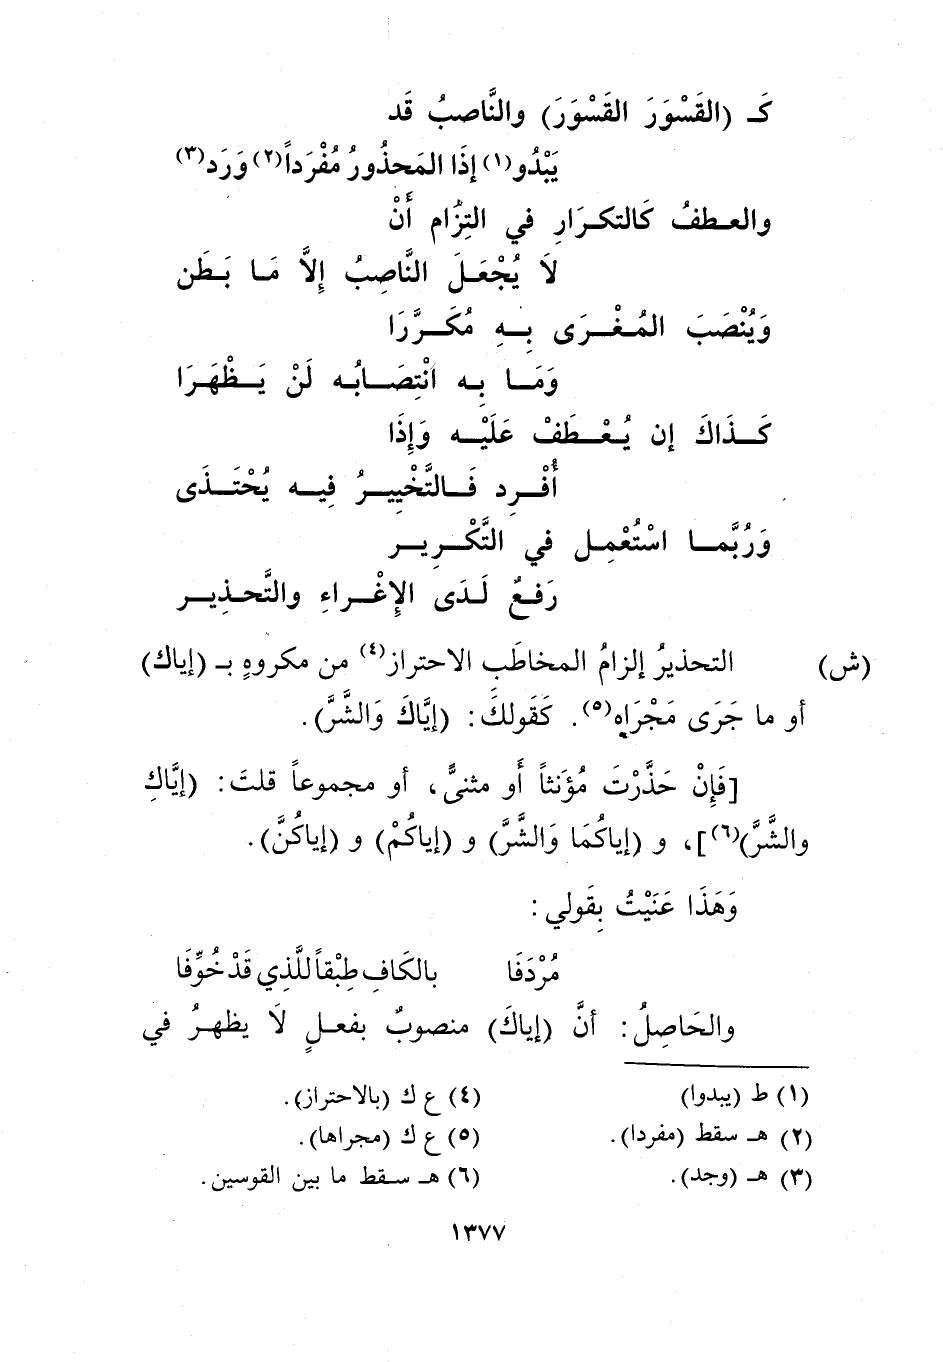 كَـ (القَسْوَرَ القَسْوَرَ) والنَّاصبُ قَد
يَبْدُو(١) إذَا المَحذُورُ مُفْرَداً(٢) وَرَد(٣)
والعـطفُ كَالتكـرَارِ في التِزَام أَنْ
لاَ يُجْعَلَ النَّاصِبُ إِلاَّ مَـا بَـطَن
وَيُنْصَبَ المُـغْــرَى بِــهِ مُكَــرَّرَا
وَمَــا بِـه انْتِصَــابُـه لَنْ يَــظْهَـرَا
كَــذَاكَ إن يُـعْـطَفْ عَلَيْــه وَإِذَا
أُفْــرِد فَــالتَّخْيِيــرُ فِيــه يُحْتَــذَى
وَرُبَّمــا اسْتُعْمِـل في التَّكْــرِيــر
رَفعٌ لَـدَى الإِغْــراءِ والتَّحـذِيــر
(ش) التحذيرُ إلزامُ المخاطَب الاحتراز(٤) من مكروهٍ بـ (إياك)
أو ما جَرَى مَجْرَاه(٥). كَقَولكَ: (إيَّاكَ وَالشَّرَّ).
[فَإِنْ حَذَّرْتَ مُؤَنثاً أو مثنىًّ، أو مجموعاً قلتَ: (إيَّاكِ
والشَّرَّ)(٦)]، و (إياكُمَا وَالشَّرَّ) و (إياكُمْ) و (إياكُنَّ).
وَهَذَا عَنَيْتُ بِقَولي:
مُرْدَفَا بالكَافِ طِبْقاً للَّذِي قَدْ خُوِّفَا
والحَاصِلُ: أنَّ (إياكَ) منصوبٌ بفعـلٍ لاَ يظهـرُ في
(١) ط (يبدوا)
(٢) هـ سقط (مفردا).
(٣) هـ (وجد).
(٤) ع ك (بالاحتراز).
(٥) ع ك (مجراها).
(٦) هـ سـقط ما بين القوسين.
١٣٧٧